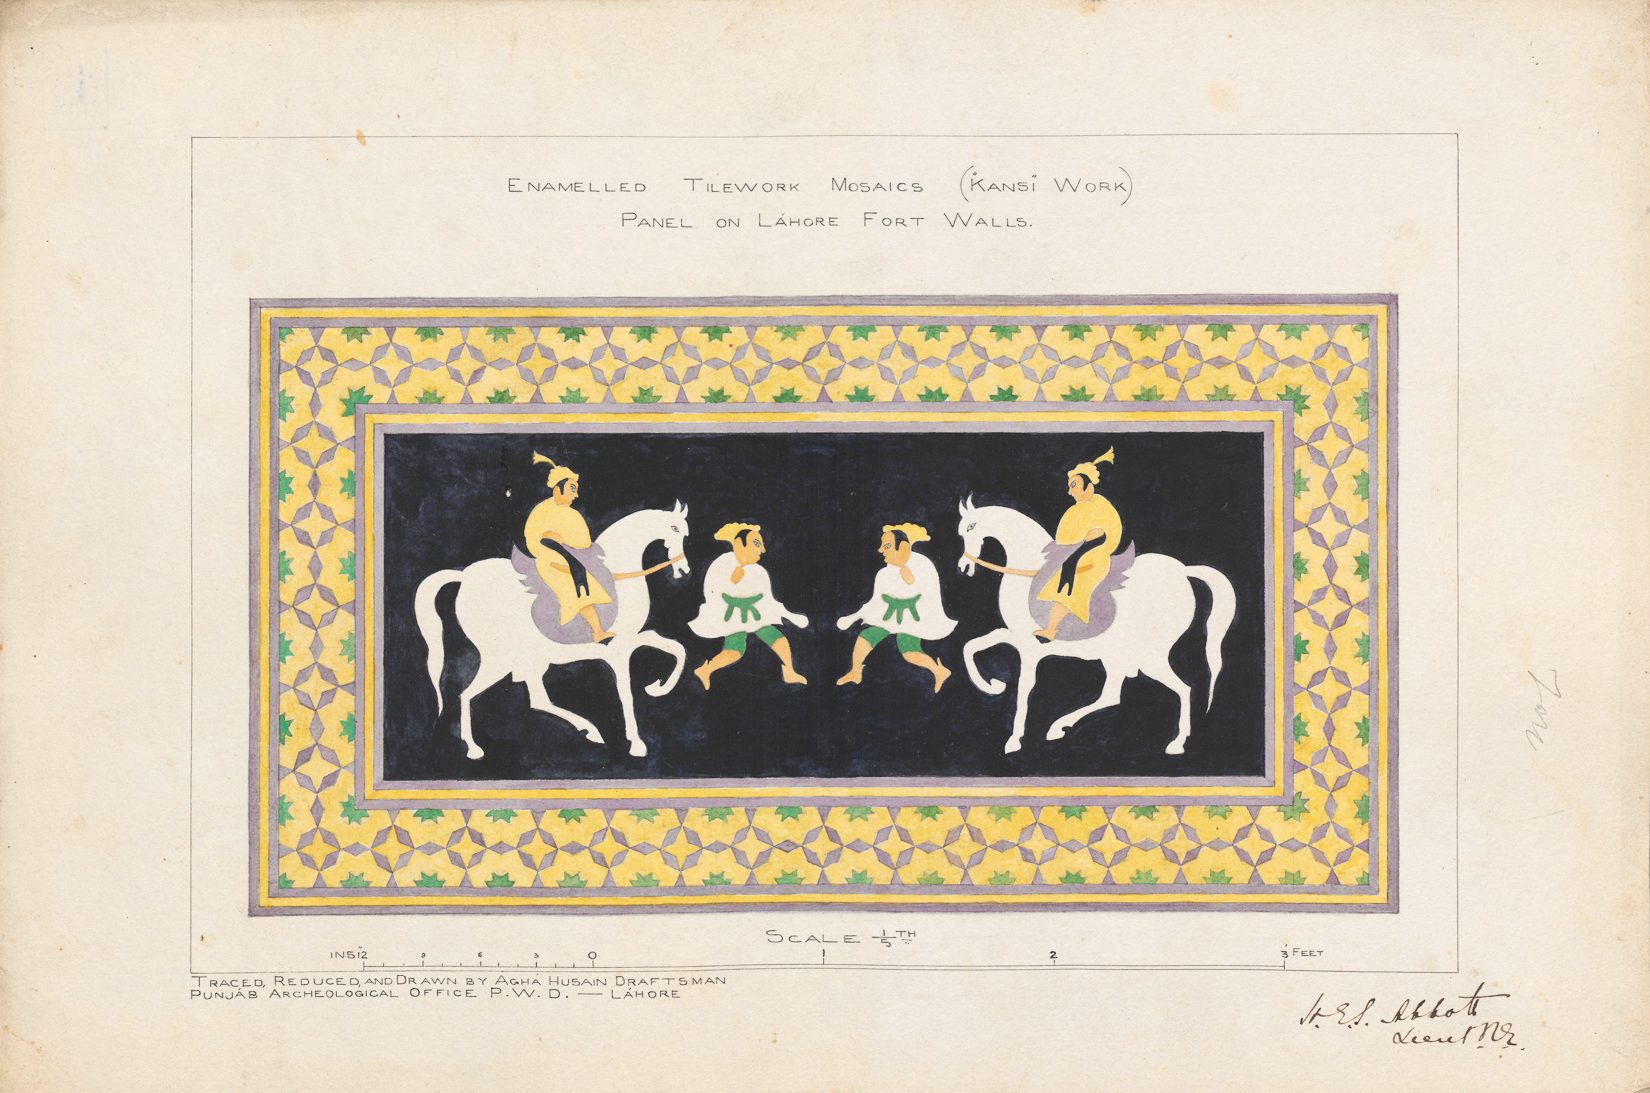 ENAMELLED TILEWORK MOSAICS (KANSI WORK)
PANEL ON LÁHORE FORT WALLS.
SCALE 1/5TH
INS 12 9 6 3 0 1 2 3 FEET
TRACED, REDUCED, AND DRAWN BY AGHÁ HUSAIN DRAFTSMAN
PUNJÁB ARCHEOLOGICAL OFFICE P.W.D. — LÁHORE
H. E. S. Abbott
Lieut R.E.